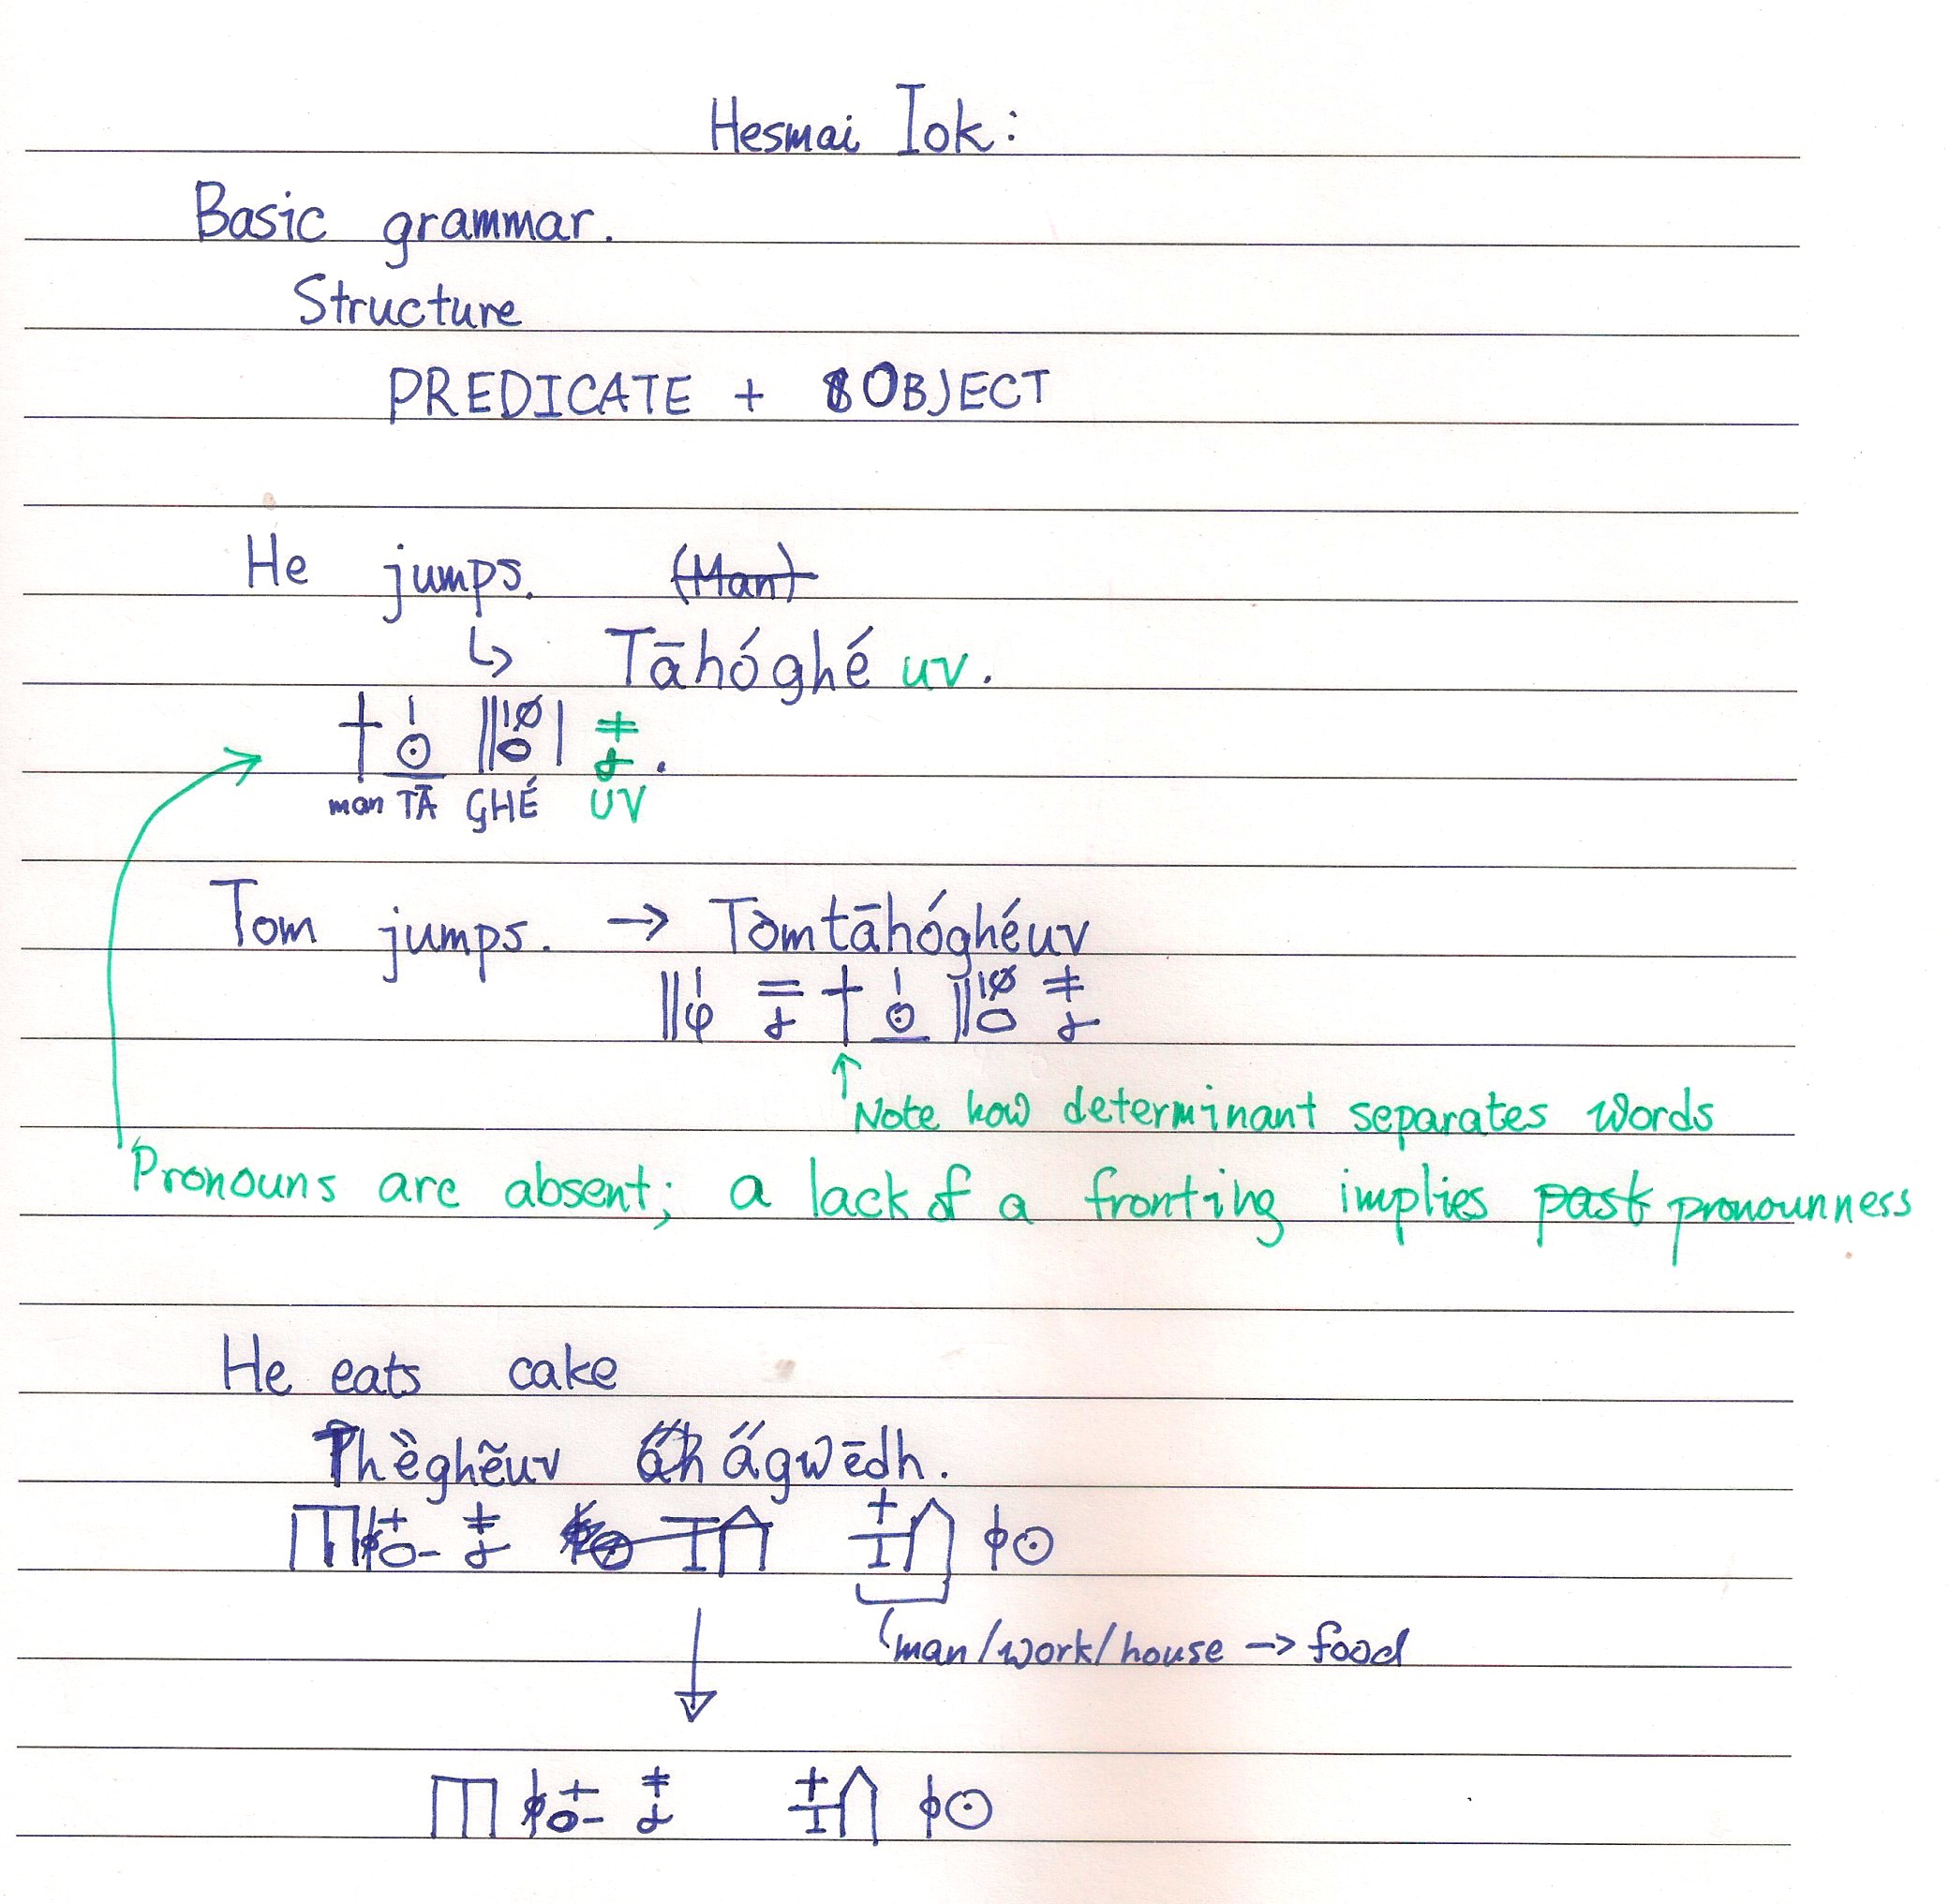 Hesmai Iok:
Basic grammar.
Structure
PREDICATE + OBJECT
He jumps. (Man)
↳ Tāhóghé uv.
man TĀ GHÉ UV
Tom jumps. → Tòmtāhóghéuv
↑ Note how determinant separates words
Pronouns are absent; a lack of a fronting implies past pronounness
He eats cake
Thèghẽuv a̋gwēdh.
man/work/house → food